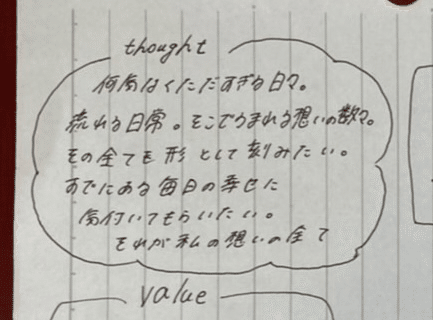 thought
何気なくただすぎる日々。
流れる日常。そこでうまれる想いの数々。
その全てを形として刻みたい。
すでにある毎日の幸せに
気付いてもらいたい。
それが私の想いの全て
value